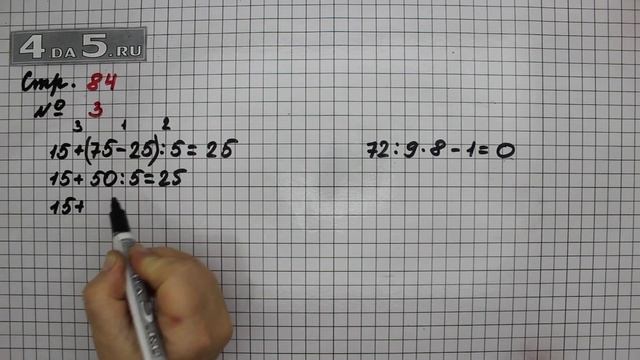 4DA5.RU
Стр. 84
№ 3
3 1 2
15+(75-25):5=25
15+50:5=25
15+
72:9·8-1=0